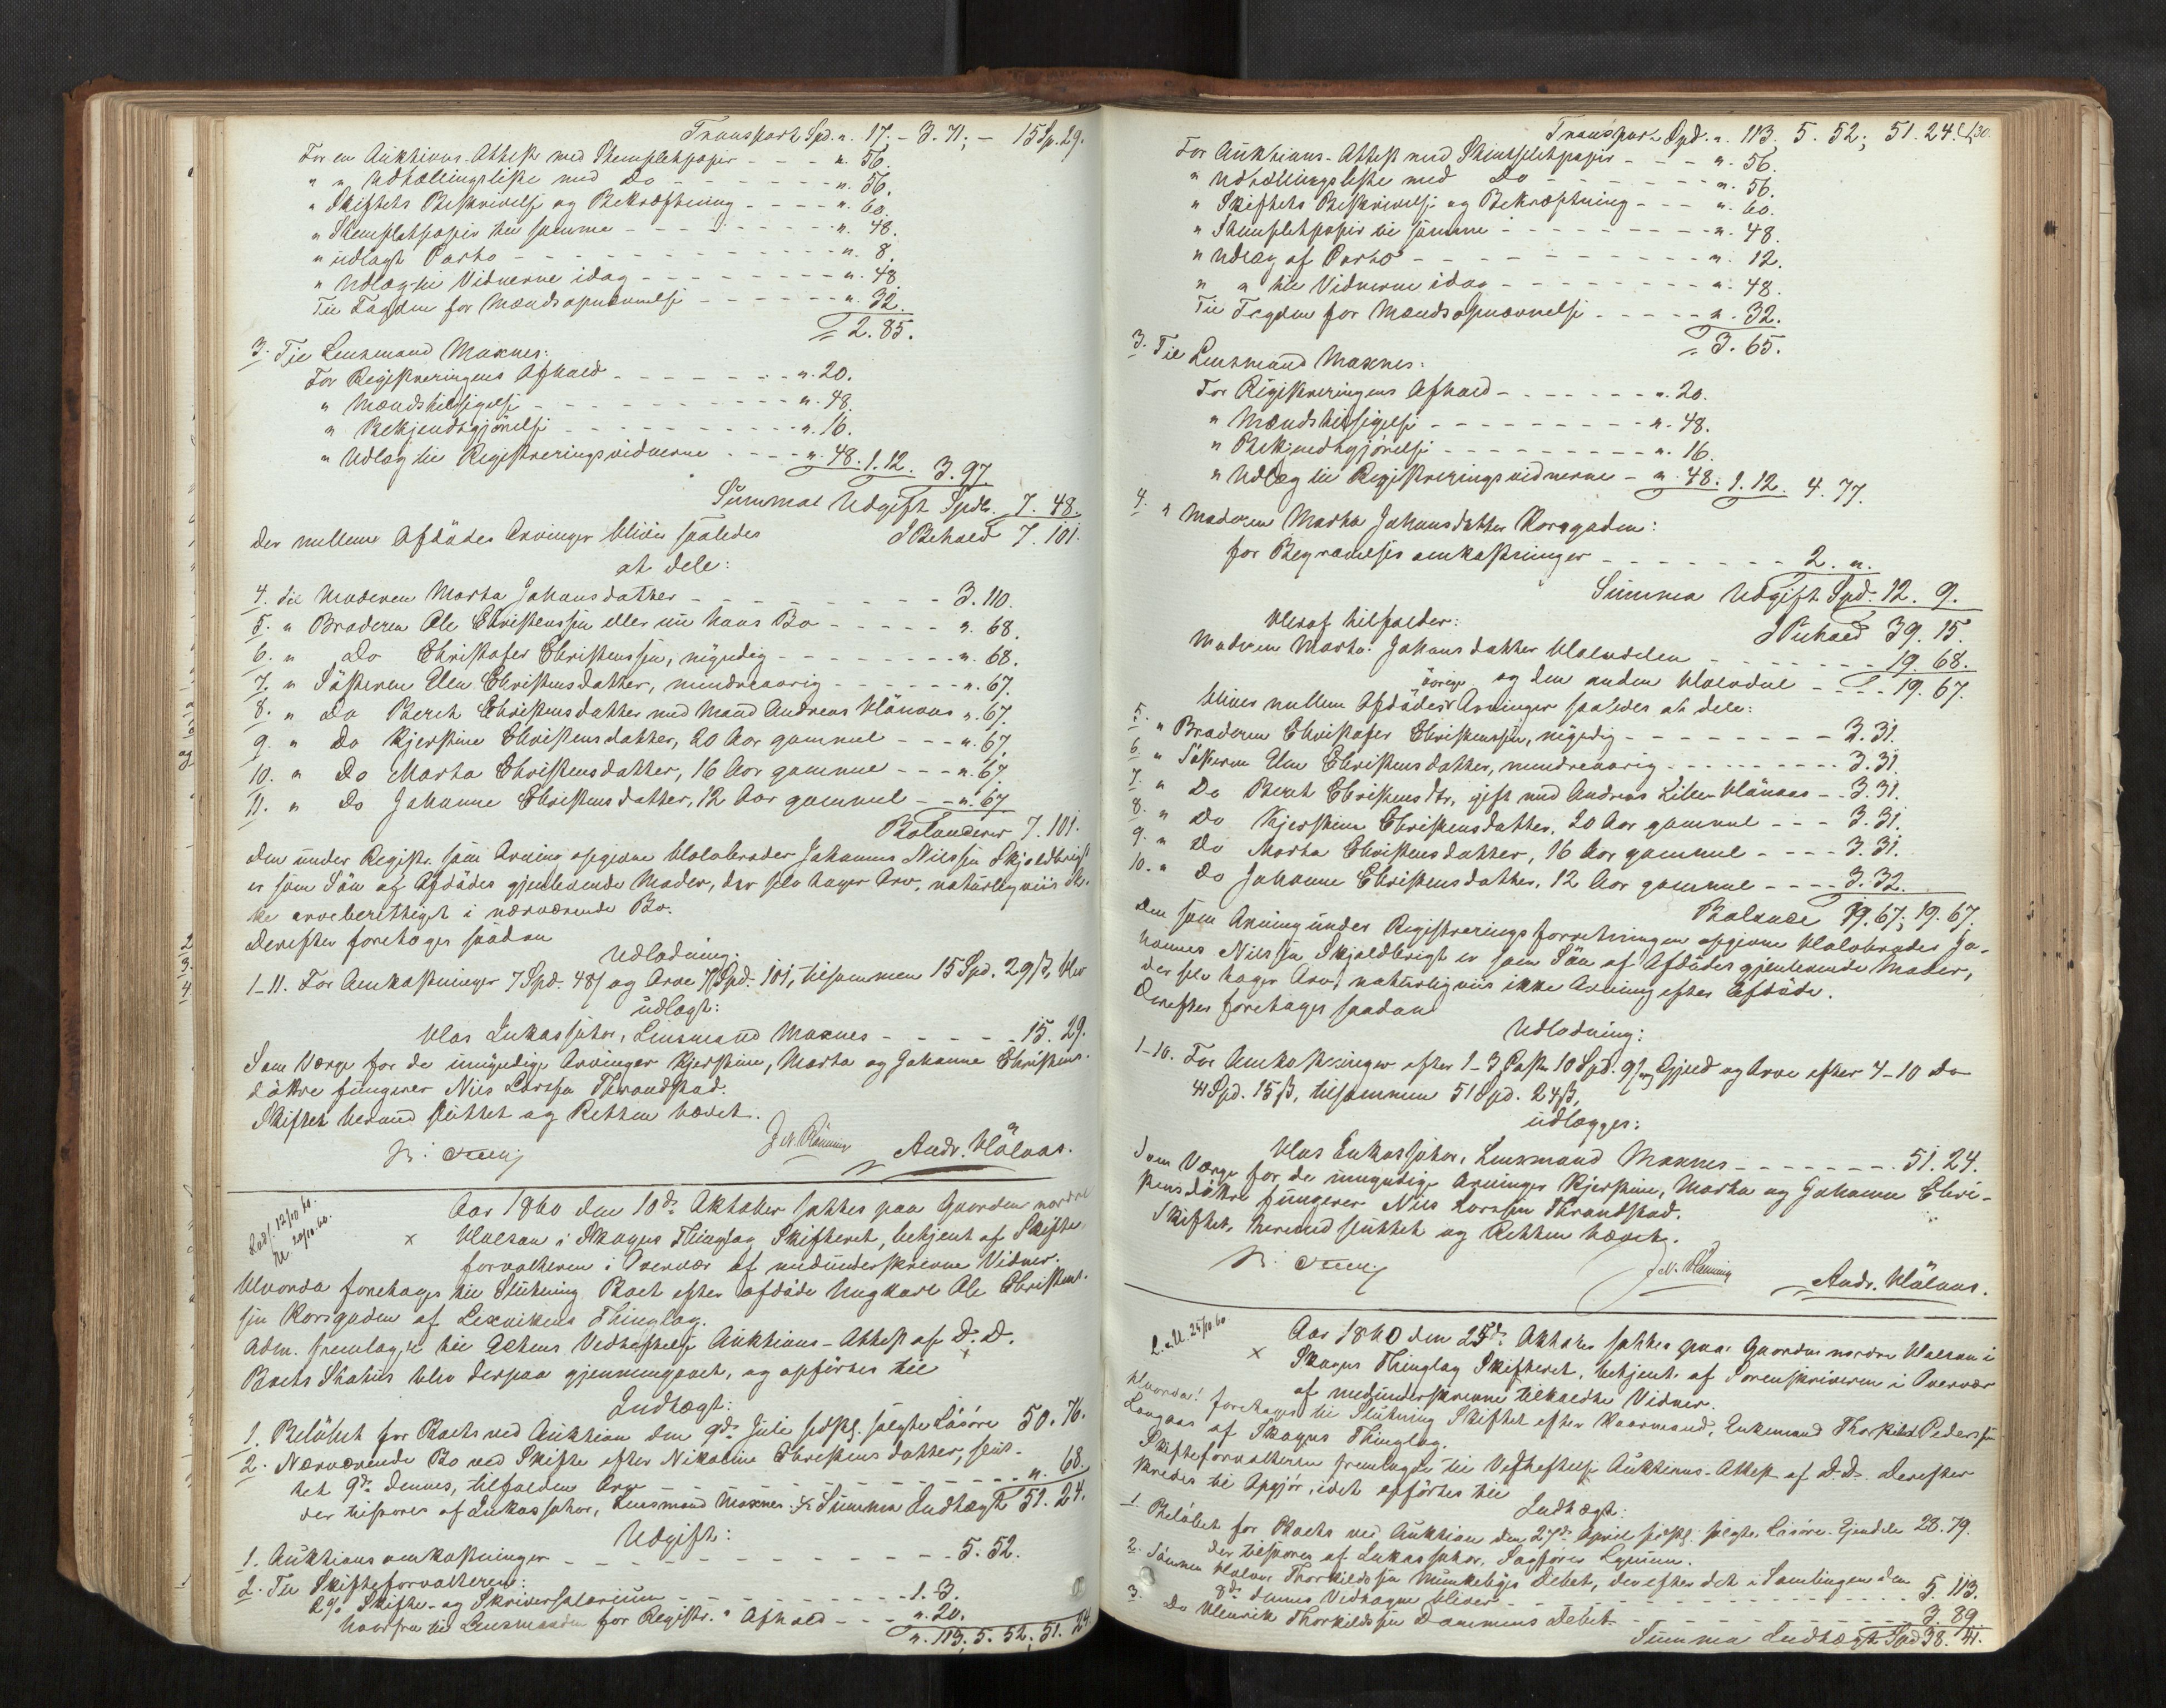 Transport Spd. „. 17. – 3. 71; – 15 Sp. 29.
For en Auktions-Attest med Stempletpapir - - - „. 56.
„ „ Udtællingsliste med Do - - - - - - „. 56.
„ Skiftets Beskrivelse og Bekræftning - - - - „. 60.
„ Stempletpapir til samme - - - - - - - „. 48.
„ udlagt Porto - - - - - - - - - - „. 8.
„ Udlæg til Vidnerne idag - - - - - - - „. 48.
Til Fogden for Mændsopnævnelse - - - - - „. 32.
2. 85.
3. Til Lensmand Moxnes:
For Registreringens Afhold - - - - - - - „. 20.
„ Mændstilsigelse - - - - - - - - - „. 48.
„ Bekjendtgjörelse - - - - - - - - - „. 16.
„ Udlæg til Registreringsvidnerne - - - - „. 48. 1. 12. 3. 97.
Summa Udgift Spdl. 7. 48.
I Behold 7. 101.
der mellem Afdödes Arvinger bliver saaledes
at dele:
4. til Moderen Marta Johansdatter - - - - - - - - - 3. 110.
5. „ Broderen Ole Christenssen eller nu hans Bo - - - - - „. 68.
6. „ Do Christofer Christenssen, myndig - - - - - - - „. 68.
7. „ Söskeren Elen Christensdatter, mindreaarig - - - - - - „. 67.
8. „ Do Beret Christensdatter med Mand Andreas Hånaas „. 67.
9. „ Do Kjerstine Christensdatter, 20 Aar gammel - - - „. 67.
10. „ Do Marta Christensdatter, 16 Aar gammel - - - „. 67.
11. „ Do Johanne Christensdatter, 12 Aar gammel - - „. 67
Balancerer 7. 101.
Den under Registr. som Arving opgivne Halvbroder Johannes Nilssen Skjoldbrigt
er som Sön af Afdödes gjenlevende Moder, der selv tager Arv, naturligviis ik-
ke arveberettiget i nærværende Bo.
Derefter foretages saadan
Udlodning:
1–11. For Omkostninger 7 Spd. 48 ß og Arve 7 Spd. 101, tilsammen 15 Spd. 29 ß, blev
udlagt:
Hos Inkassator, Lensmand Moxnes - - - - - 15. 29.
Som Værge for de umyndige Arvinger Kjerstine, Marta og Johanne Christens-
döttre fungerer Nils Larssen Thrandstad.
Skiftet herved sluttet og Retten hævet.
Andr. Hålaas.
Aar 1860 den 10de Oktober sattes paa Gaarden nordre
x Halsan i Skogns Thinglag Skifteret, betjent af Skifte-
forvalteren i Overvær af medunderskrevne Vidner.
Hvorda foretoges til Slutning Boet efter afdöde Ungkarl Ole Christens-
sen Korsgaden af Lexvikens Thinglag.
Adm. fremlagde til Actens Vedheftelse Auktions-Attest af D. D.
Boets Status blev derpaa gjennemgaaet, og opförtes til
Indtægt:
1. Belöbet for Boets ved Auktion den 9de Juli sidstl. solgte Lösöre 50. 76.
2. Nærværende Bo ved Skifte efter Nikoline Christensdatter, slut-
tet 9de dennes, tilfalden Arv - - - - - - - - - „. 68.
der tilsvares af Inkassator, Lensmand Moxnes Summa Indtægt 51. 24.
Udgift:
1. Auktionsomkostninger - - - - - - - - - - 5. 52.
2. Til Skifteforvalteren:
2% Skifte- og Skriversalarium - - - - - - - 1. 3.
hvorfra til Lensmanden for Registr.s Afhold - - - „. 20.
„. 113; 5. 52; 51. 24
Transport Spd. „. 113, 5. 52; 51. 24. 130.
For Auktions-Attest med Stempletpapir - - - „. 56.
„ Udtællingsliste med Do - - - - - - „. 56.
„ Skiftets Beskrivelse og Bekræftning - - - „. 60.
„ Stempletpapir til samme - - - - - - - „. 48.
„ Udlæg af Porto - - - - - - - - - „. 12.
„ „ til Vidnerne idag - - - - - - - - „. 48.
Til Fogden for Mændsopnævnelse - - - - - „. 32.
3. 65.
3. Til Lensmand Moxnes:
For Registreringens Afhold - - - - - - „. 20.
„ Mændstilsigelse - - - - - - - - „. 48.
„ Bekjendtgjörelse - - - - - - - - „. 16.
„ Udlæg til Registreringsvidnerne - „. 48. 1. 12. 4. 77.
4. „ Moderen Marta Johansdatter Korsgaden:
for Begravelsesomkostninger - - - - - - - 2. „.
Summa Udgift Spd. 12. 9.
I Behold 39. 15.
Heraf tilfalder:
Moderen Marta Johansdatter Halvdelen - - - - - - 19. 68.
og den anden Halvdel - - - - 19. 67.
bliver mellem Afdödes övrige Arvinger saaledes at dele:
5. „ Broderen Christofer Christenssen, myndig - - - - - - - - 3. 31.
6. „ Söskeren Elen Christensdatter, mindreaarig - - - - - - - 3. 31.
7. „ Do Beret Christensdtr, gift med Andreas Lille-Hånaas - - 3. 31.
8. „ Do Kjerstine Christensdatter, 20 Aar gammel - - - 3. 31.
9. „ Do Marta Christensdatter, 16 Aar gammel - - - - 3. 31.
10. „ Do Johanne Christensdatter, 12 Aar gammel - - - - 3. 32.
Balance 19. 67; 19. 67.
Den som Arving under Registreringsforretningen opgivne Halvbroder Jo-
hannes Nilssen Skjoldbrigt er som Sön af Afdödes gjenlevende Moder,
der selv tager Arv, naturligviis ikke Arving efter Afdöde.
Derefter foretages saadan
Udlodning:
1–10. For Omkostninger efter 1–3 Post 10 Spd. 9 ß, og Gjeld og Arve efter 4–10 Do
41 Spd. 15 ß, tilsammen 51 Spd. 24 ß,
udlægges:
Hos Inkassator, Lensmand Moxnes - - - - - - - 51. 24.
Som Værge for de umyndige Arvinger Kjerstine, Marta og Johanne Chri-
stensdöttre fungerer Nils Larssen Thrandstad.
Skiftet hermed sluttet og Retten hævet.
Andr. Hålaas.
Aar 1860 den 25de Oktober sattes paa Gaarden nordre Halsan i
x Skogns Thinglag Skifteret, betjent af Sorenskriveren i Overvær
af medunderskrevne tilkaldte Vidner.
Hvorda! foretages til Slutning Skiftet efter Huusmand, Enkemand Thorkild Pederssen
Langaas af Skogns Thinglag.
Skifteforvalteren fremlagde til Vedheftelse Auktions-Attest af D. D. Derefter
skredes til Opgjör, idet opförtes til
Indtægt:
1. Belöbet for Boets ved Auktion den 27de April sidstl. solgte Lösöre-Eiendele 28. 79.
der tilsvares af Inkassator, Sagförer
2. Sönnen Halvor Thorkildssen Munkebyes Debet, der efter det i Samlingen den
9de dennes Vedtagne bliver - - - - - - - - - 5. 113.
3. Do Henrik Thorkildssen Dammens Debet - - - - - - - 3. 89.
Summa Indtægt Spd 38. 41.